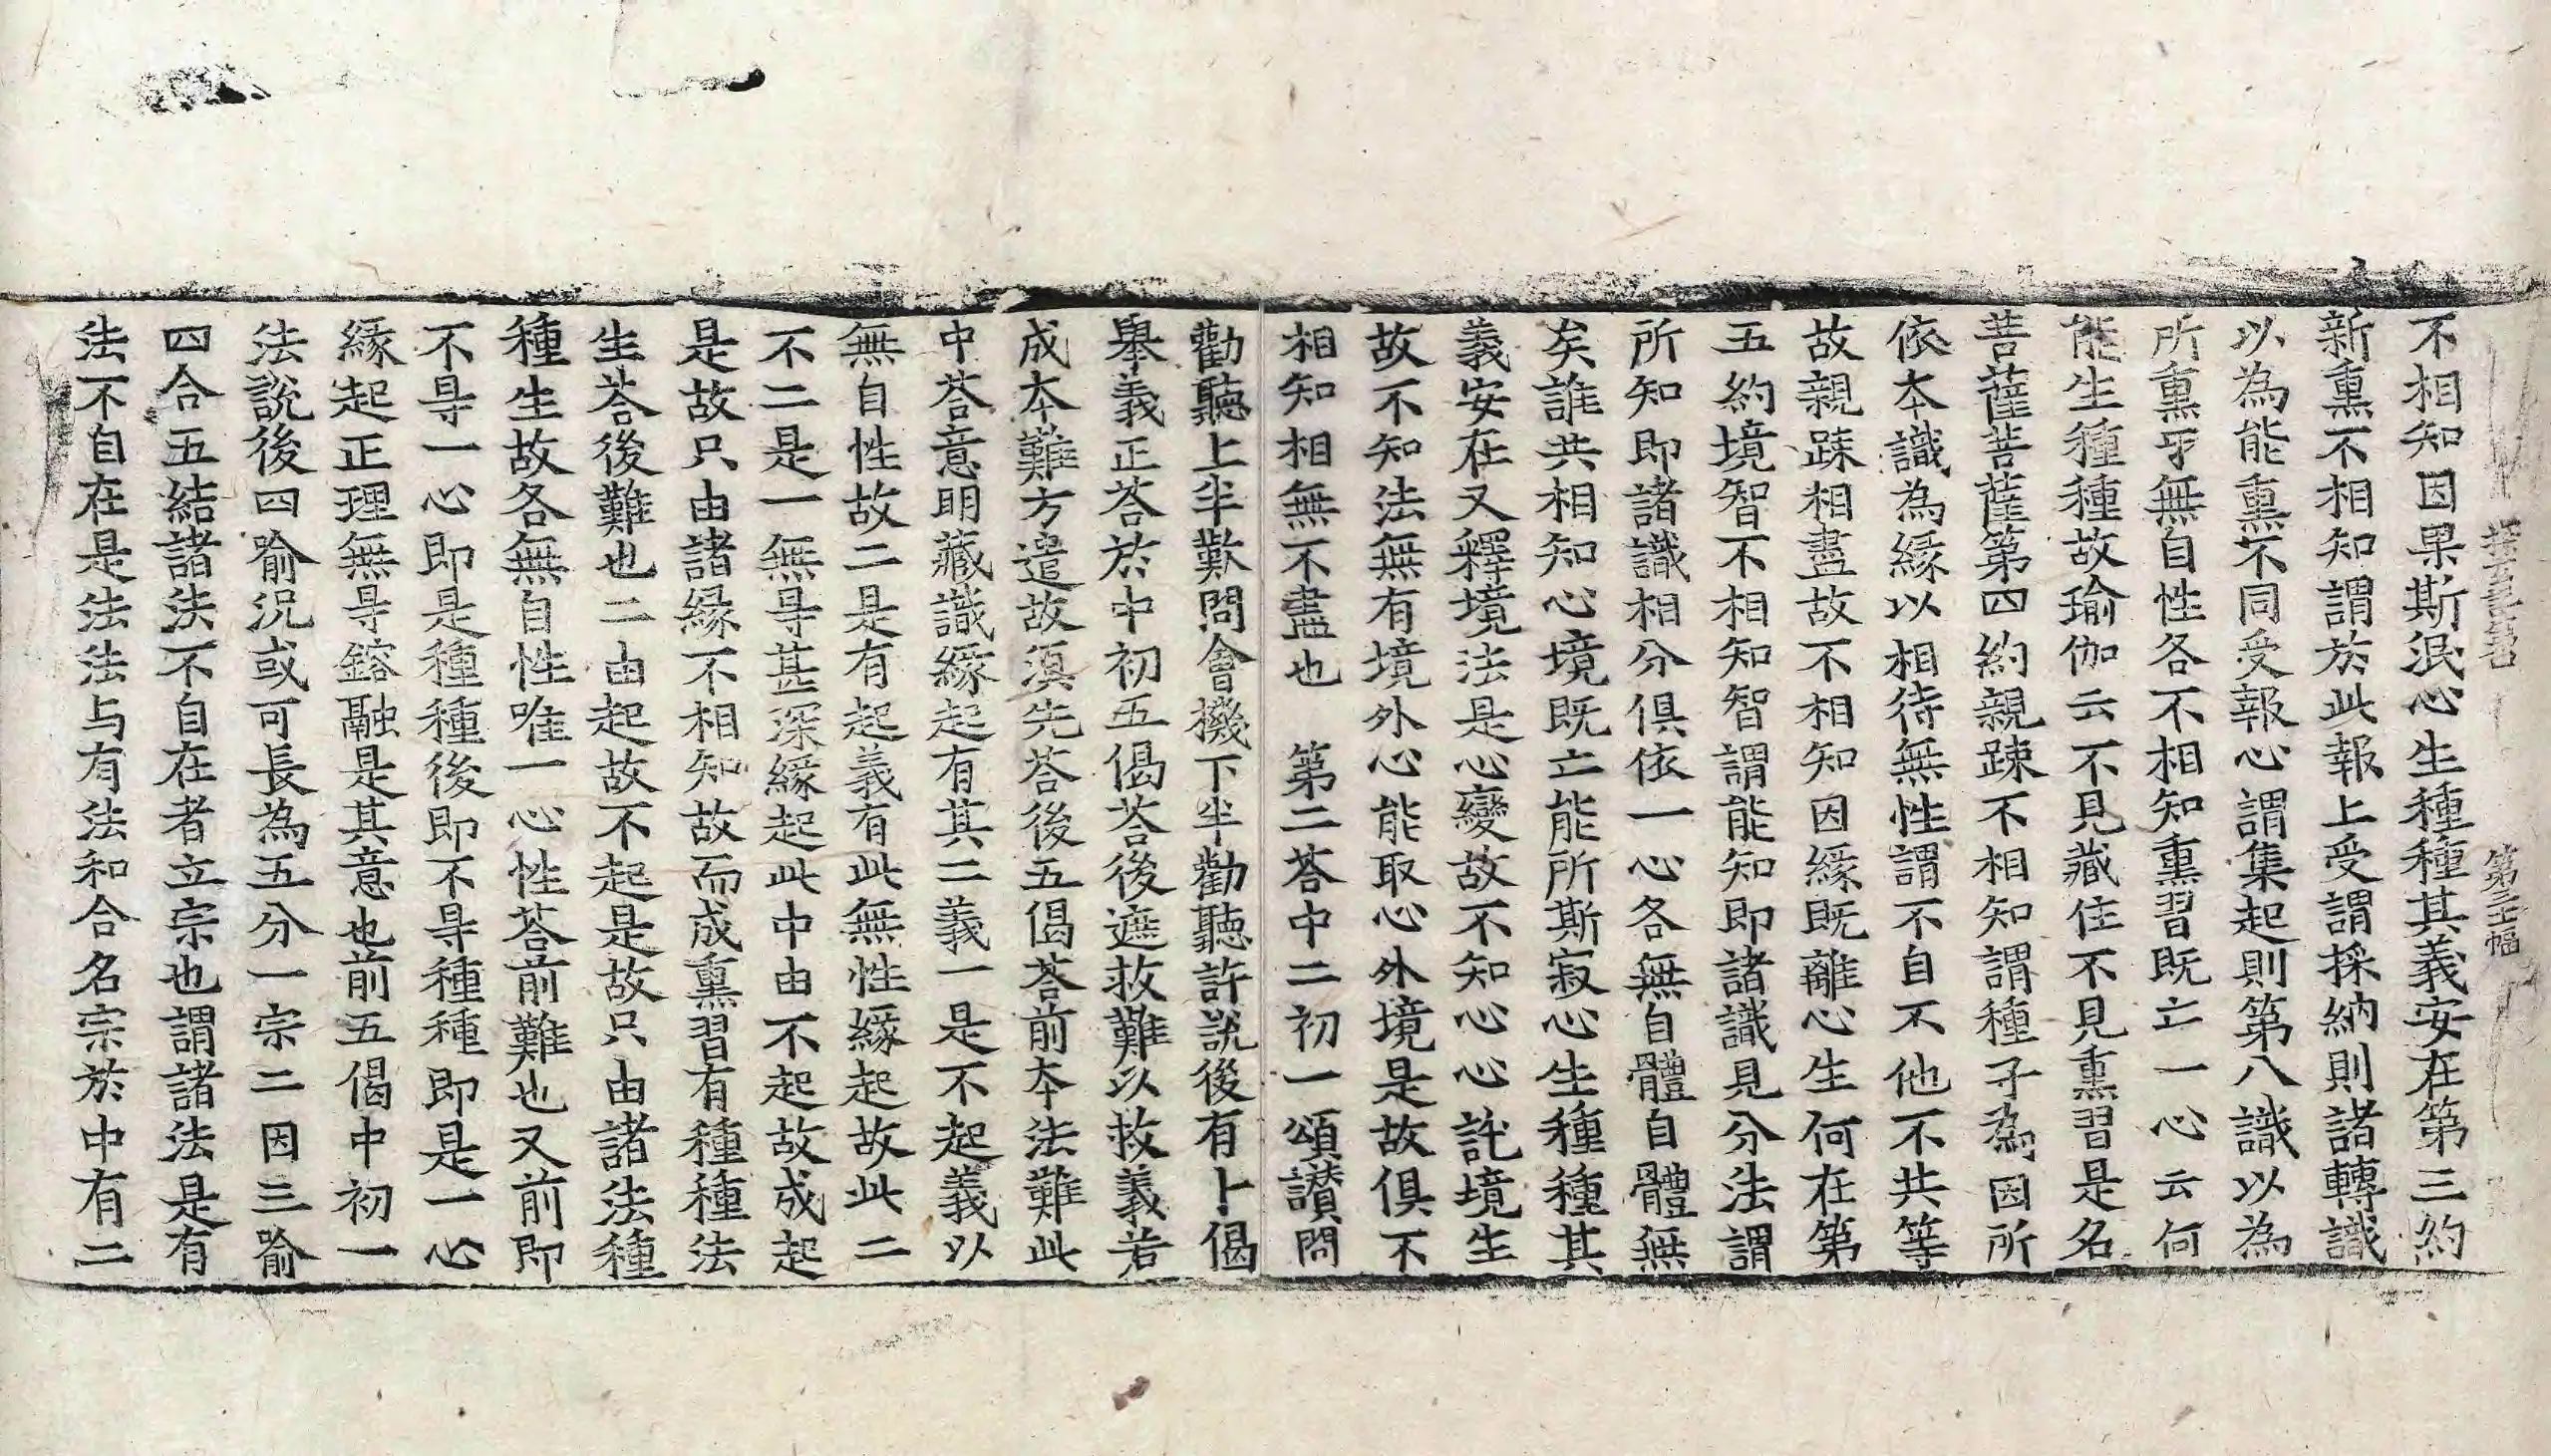 不相知因果斯泯心生種種其義安在第三約
新熏不相知謂於此報上受謂採納則諸轉識
以為能熏不同受報心謂集起則第八識以為
所熏㸦無自性各不相知熏習既亡一心云何
能生種種故瑜伽云不見藏住不見熏習是名
菩薩菩薩第四約親踈不相知謂種子為因所
依本識為緣以相待無性謂不自不他不共等
故親踈相盡故不相知因緣既離心生何在第
五約境智不相知智謂能知即諸識見分法謂
所知即諸識相分俱依一心各無自體自體無
矣誰共相知心境既亡能所斯寂心生種種其
義安在又釋境法是心變故不知心心託境生
故不知法無有境外心能取心外境是故俱不
相知相無不盡也　第二荅中二初一頌讃問
勸聽上半歎問會機下半勸聽許説後有卜偈
舉義正荅於中初五偈荅後遮救難以救義若
成本難方遣故湏先荅後五偈荅前本法難此
中荅意明藏識緣起有其二義一是不起義以
無自性故二是有起義有此無性緣起故此二
不二是一無㝵甚深緣起此中由不起故成起
是故只由諸緣不相知故而成熏習有種種法
生荅後難也二由起故不起是故只由諸法種
種生故各無自性唯一心性荅前難也又前即
不㝵一心即是種種後即不㝵種種即是一心
緣起正理無㝵鎔融是其意也前五偈中初一
法説後四喻況或可長為五分一宗二因三喻
四合五結諸法不自在者立宗也謂諸法是有
法不自在是法法与有法和合名宗於中有二